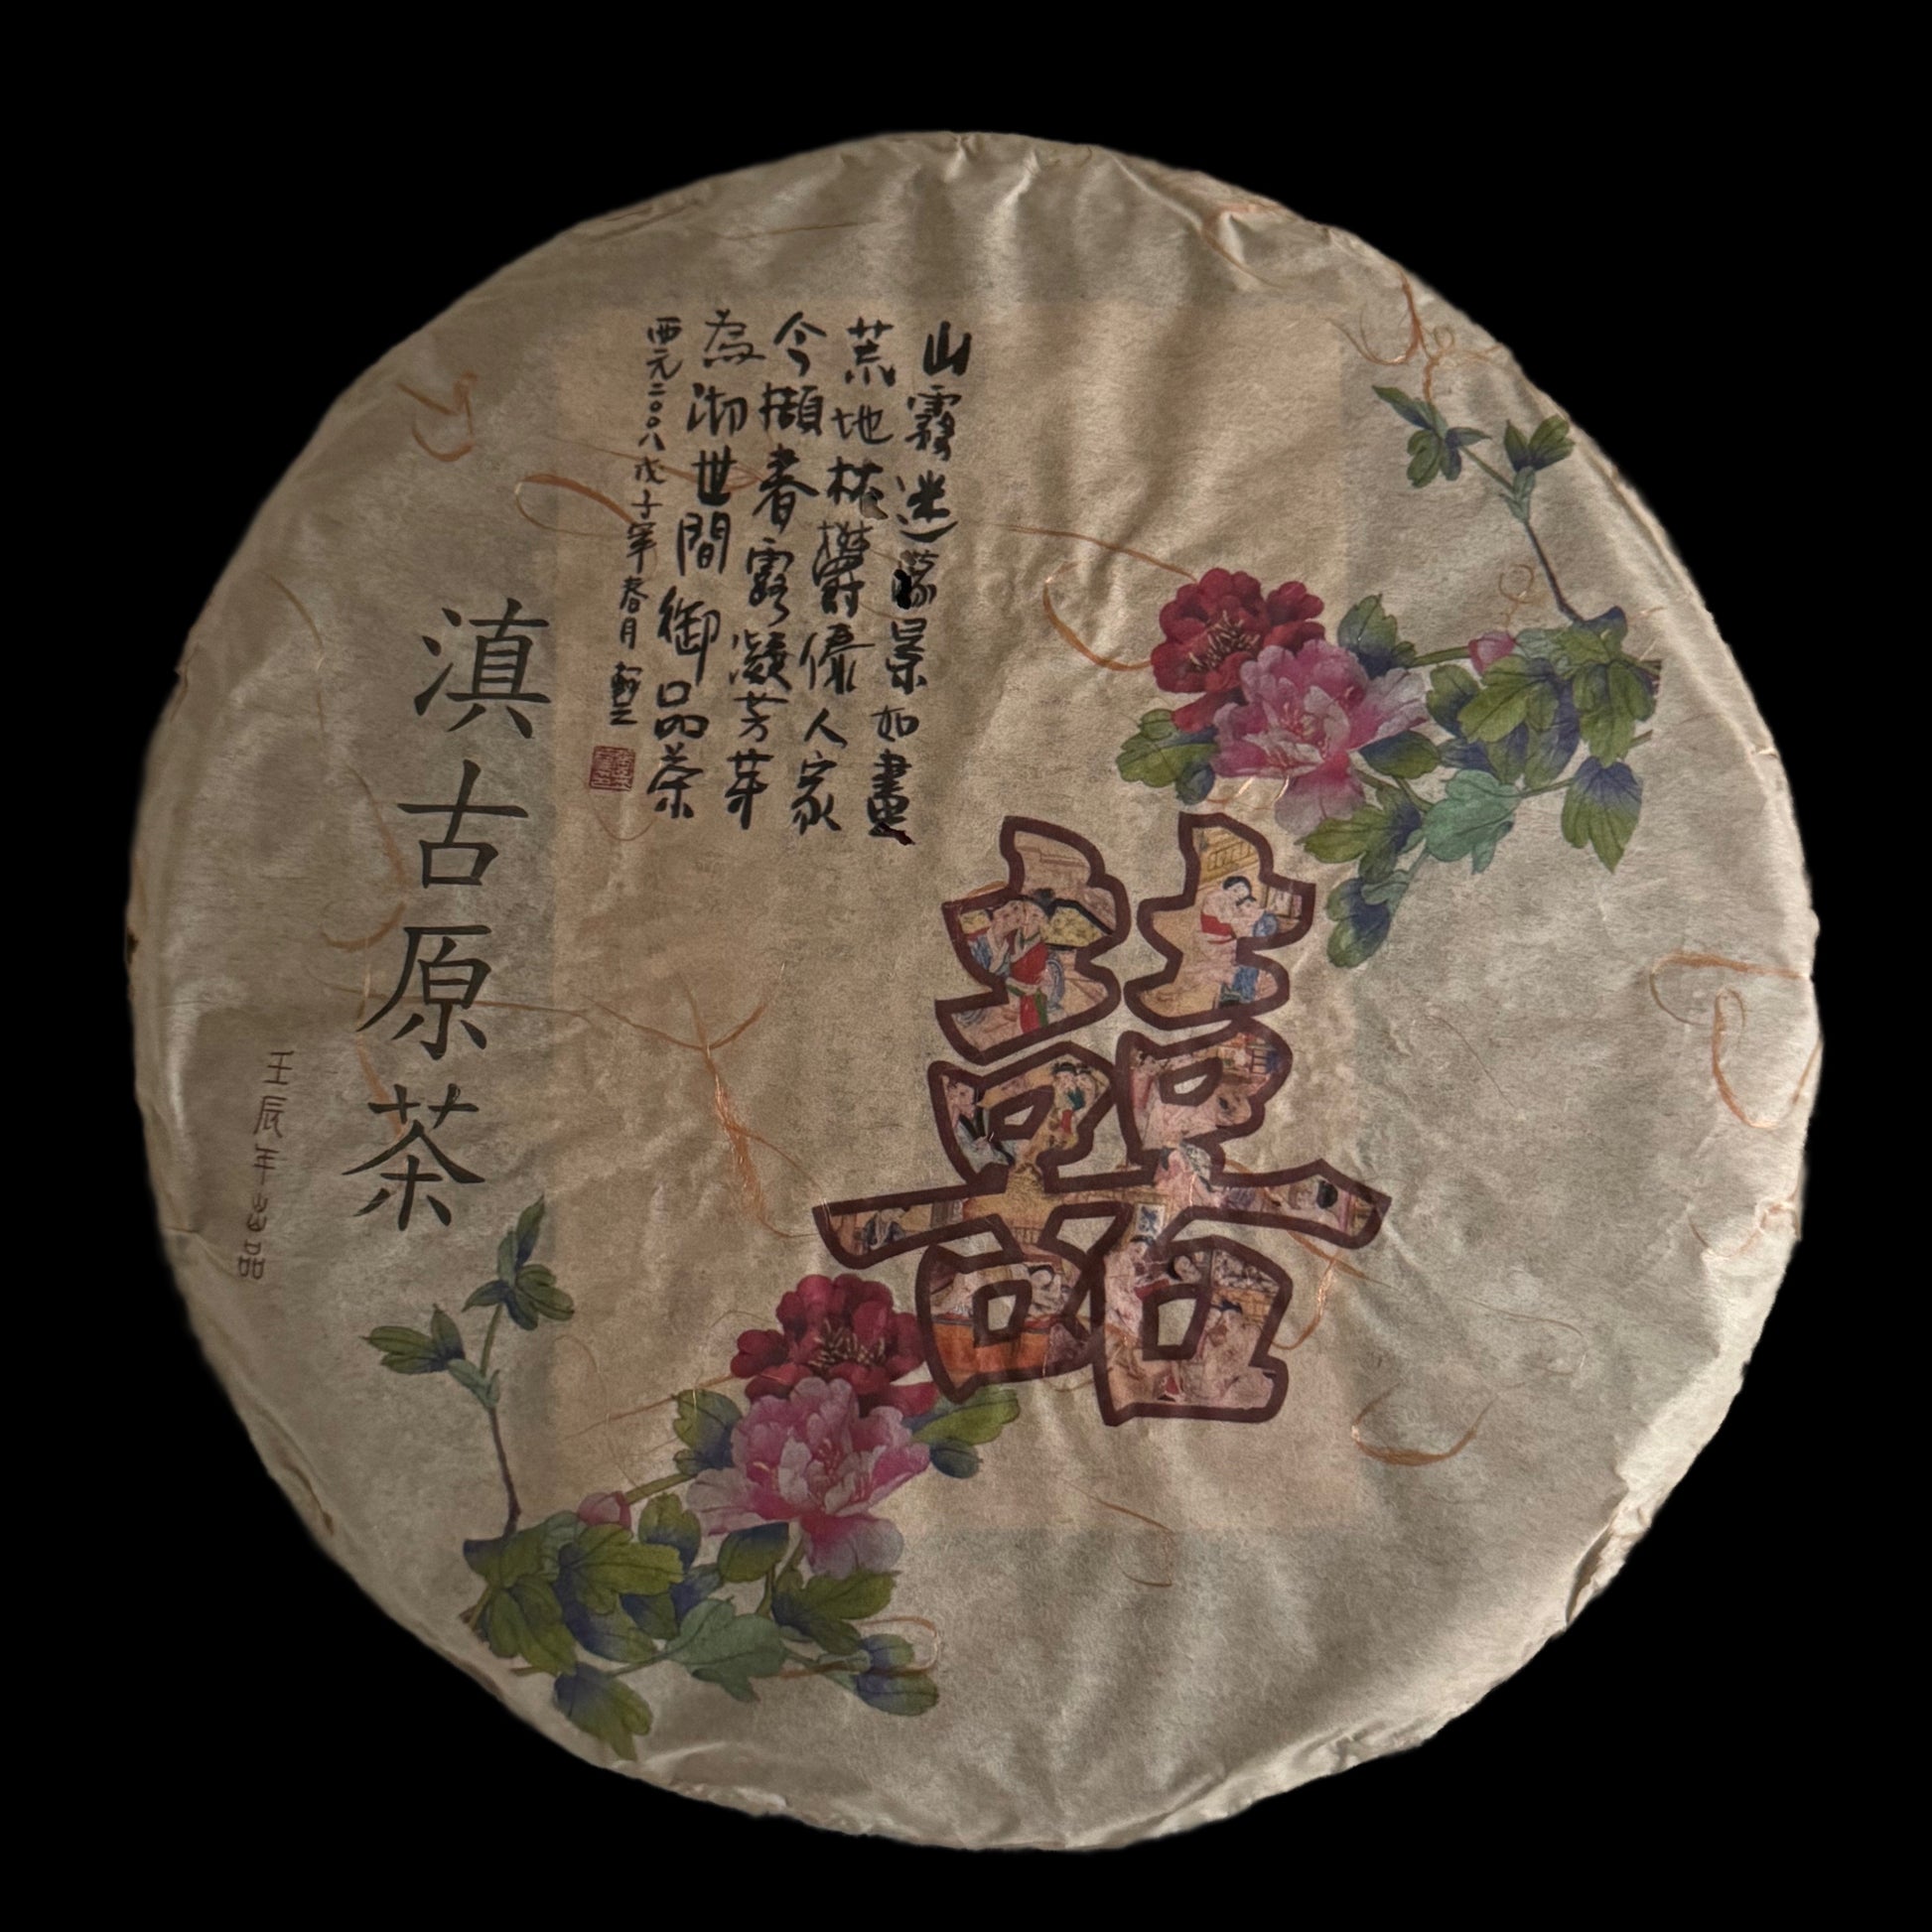 囍
山霧迷濛景如畫
荒地林欝傣人家
今擷春露凝芳芽
為沏世間御品茶
西元二〇〇八戊子年春月
滇古原茶
壬辰年出品